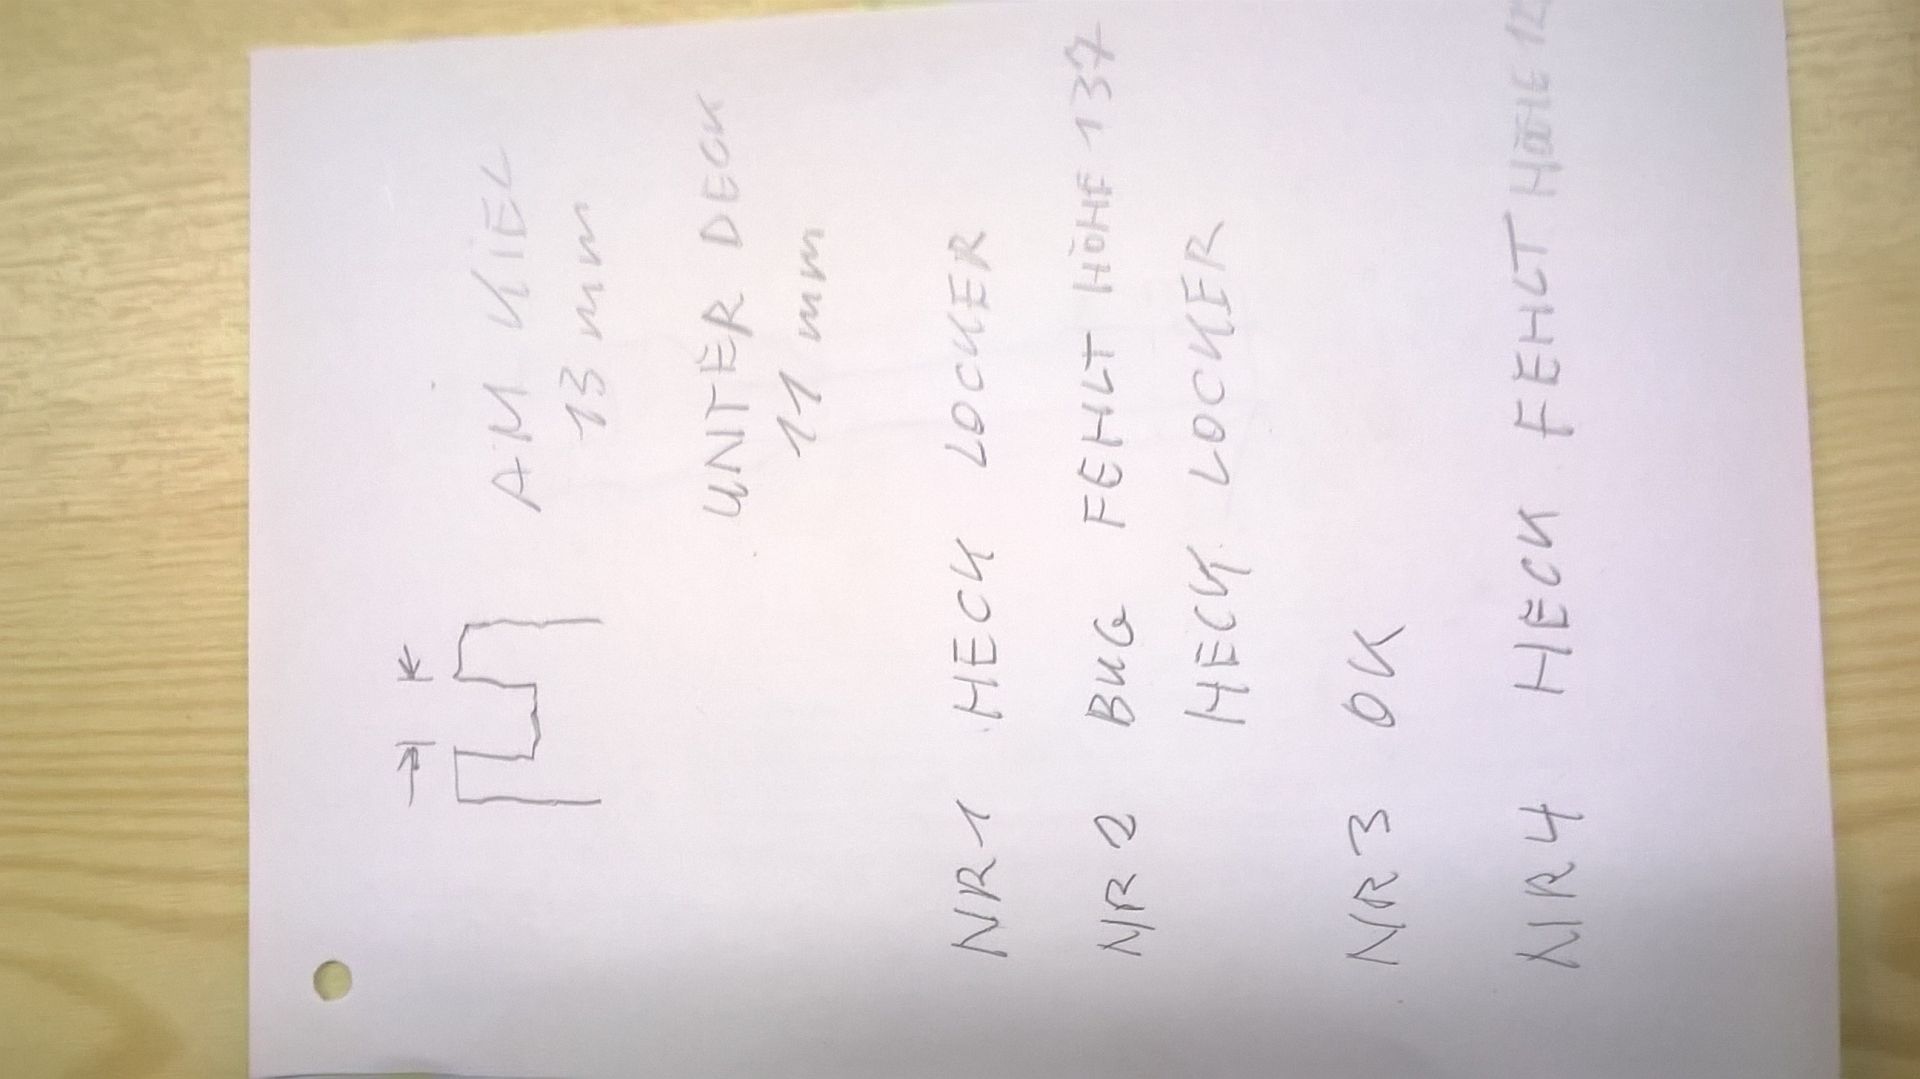 AM KIEL
13 mm
UNTER DECK
11 mm
NR 1 HECK LOCKER
NR 2 BUG FEHLT HÖHE 137
HECK LOCKER
NR 3 OK
NR 4 HECK FEHLT HÖHE